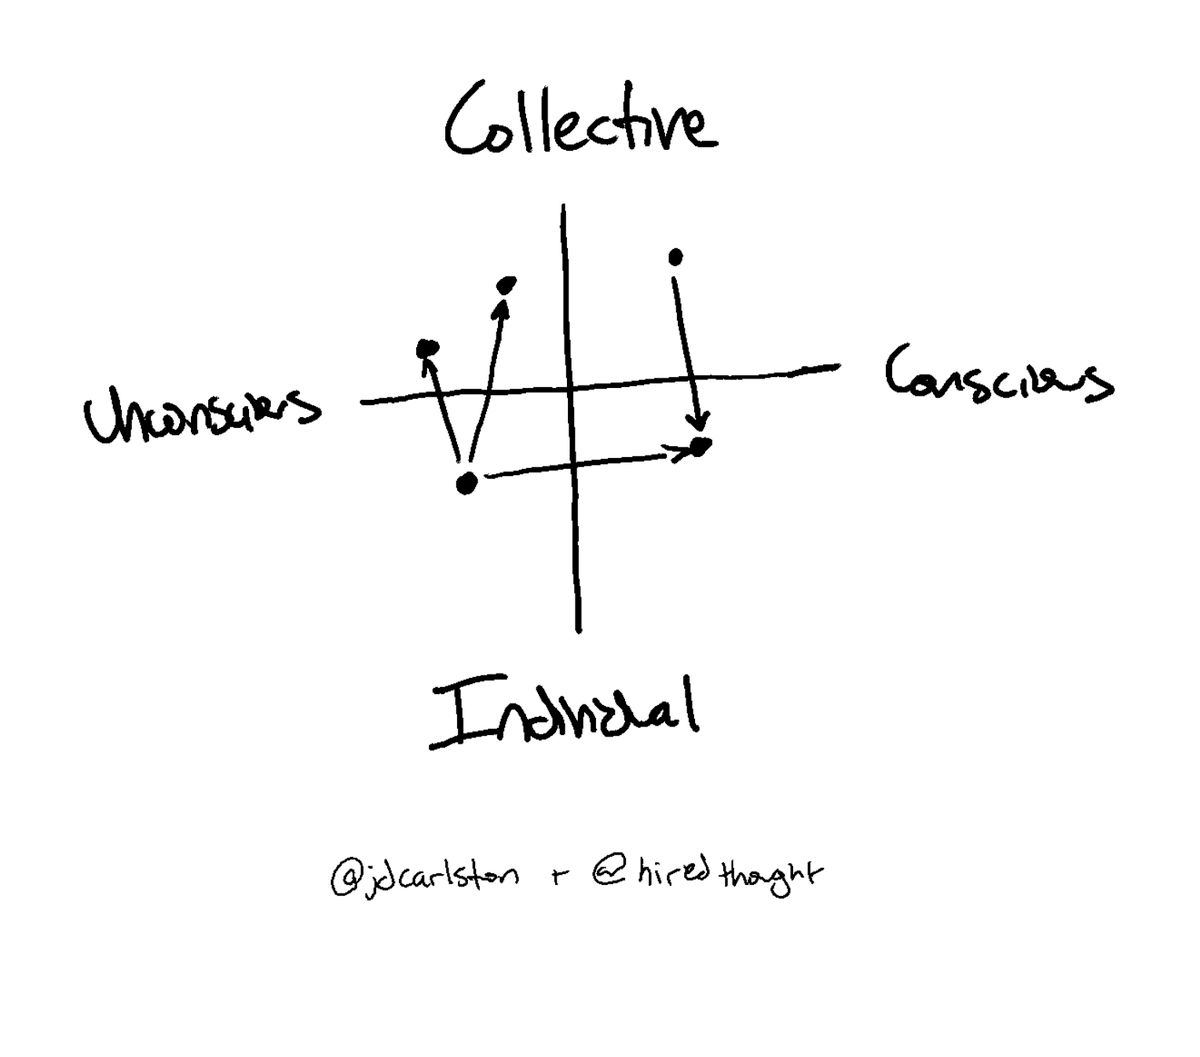 Collective
Unconscious
Conscious
Individual
@jdcarlston + @hiredthought